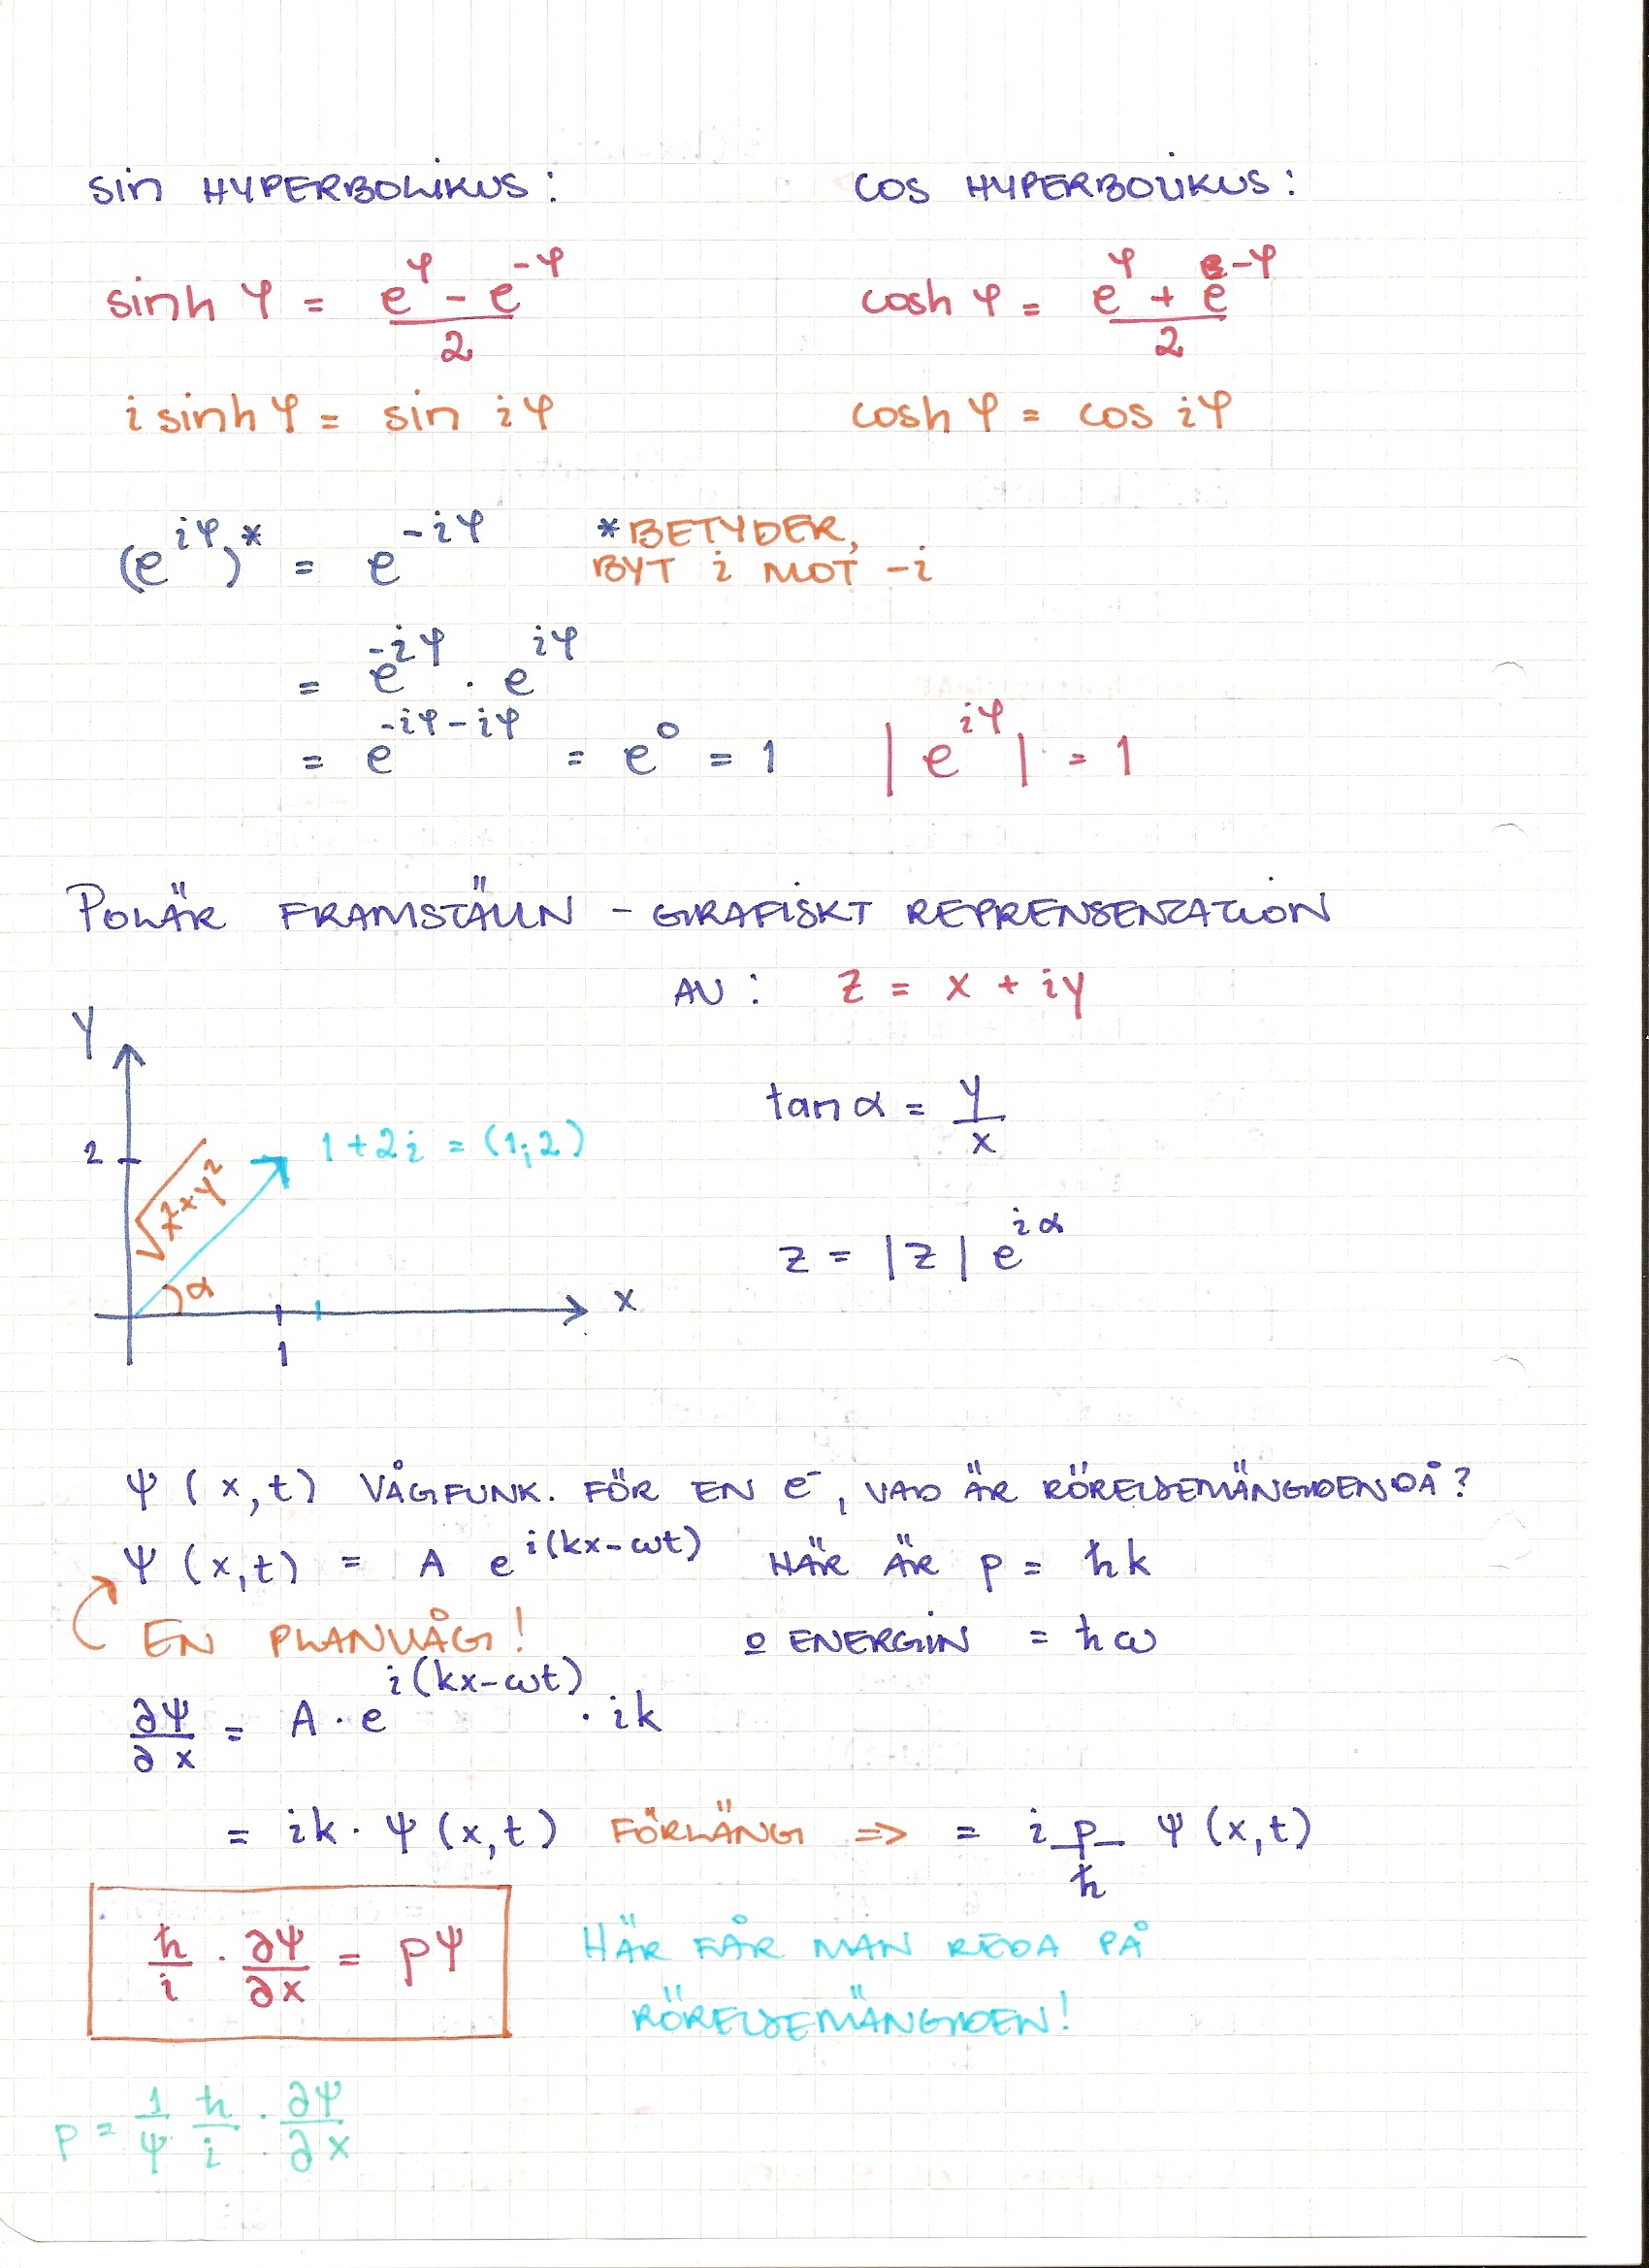 sin HYPERBOLIKUS: cos HYPERBOLIKUS:
sinh φ = (e^φ - e^-φ)/2 cosh φ = (e^φ + e^-φ)/2
i sinh φ = sin iφ cosh φ = cos iφ
(e^iφ)* = e^-iφ *BETYDER,
BYT i MOT -i
= e^-iφ · e^iφ
= e^-iφ-iφ = e^0 = 1 |e^iφ| = 1
POLÄR FRAMSTÄLLN - GRAFISKT REPRENSENTATION
AV: z = x + iy
Y
tan α = y/x
2 1+2i = (1;2)
√x²+y²
z = |z| e^iα
α
x
1
Ψ(x,t) VÅGFUNK. FÖR EN e⁻, VAD ÄR RÖRELSEMÄNGDEN DÅ?
Ψ(x,t) = A e^i(kx-ωt) HÄR ÄR p = ħk
EN PLANVÅG! o ENERGIN = ħω
∂Ψ/∂x = A · e^i(kx-ωt) · ik
= ik · Ψ(x,t) FÖRLÄNG => = i p/ħ Ψ(x,t)
ħ/i · ∂Ψ/∂x = pΨ HÄR FÅR MAN REDA PÅ
RÖRELSEMÄNGDEN!
p = 1/Ψ ħ/i · ∂Ψ/∂x